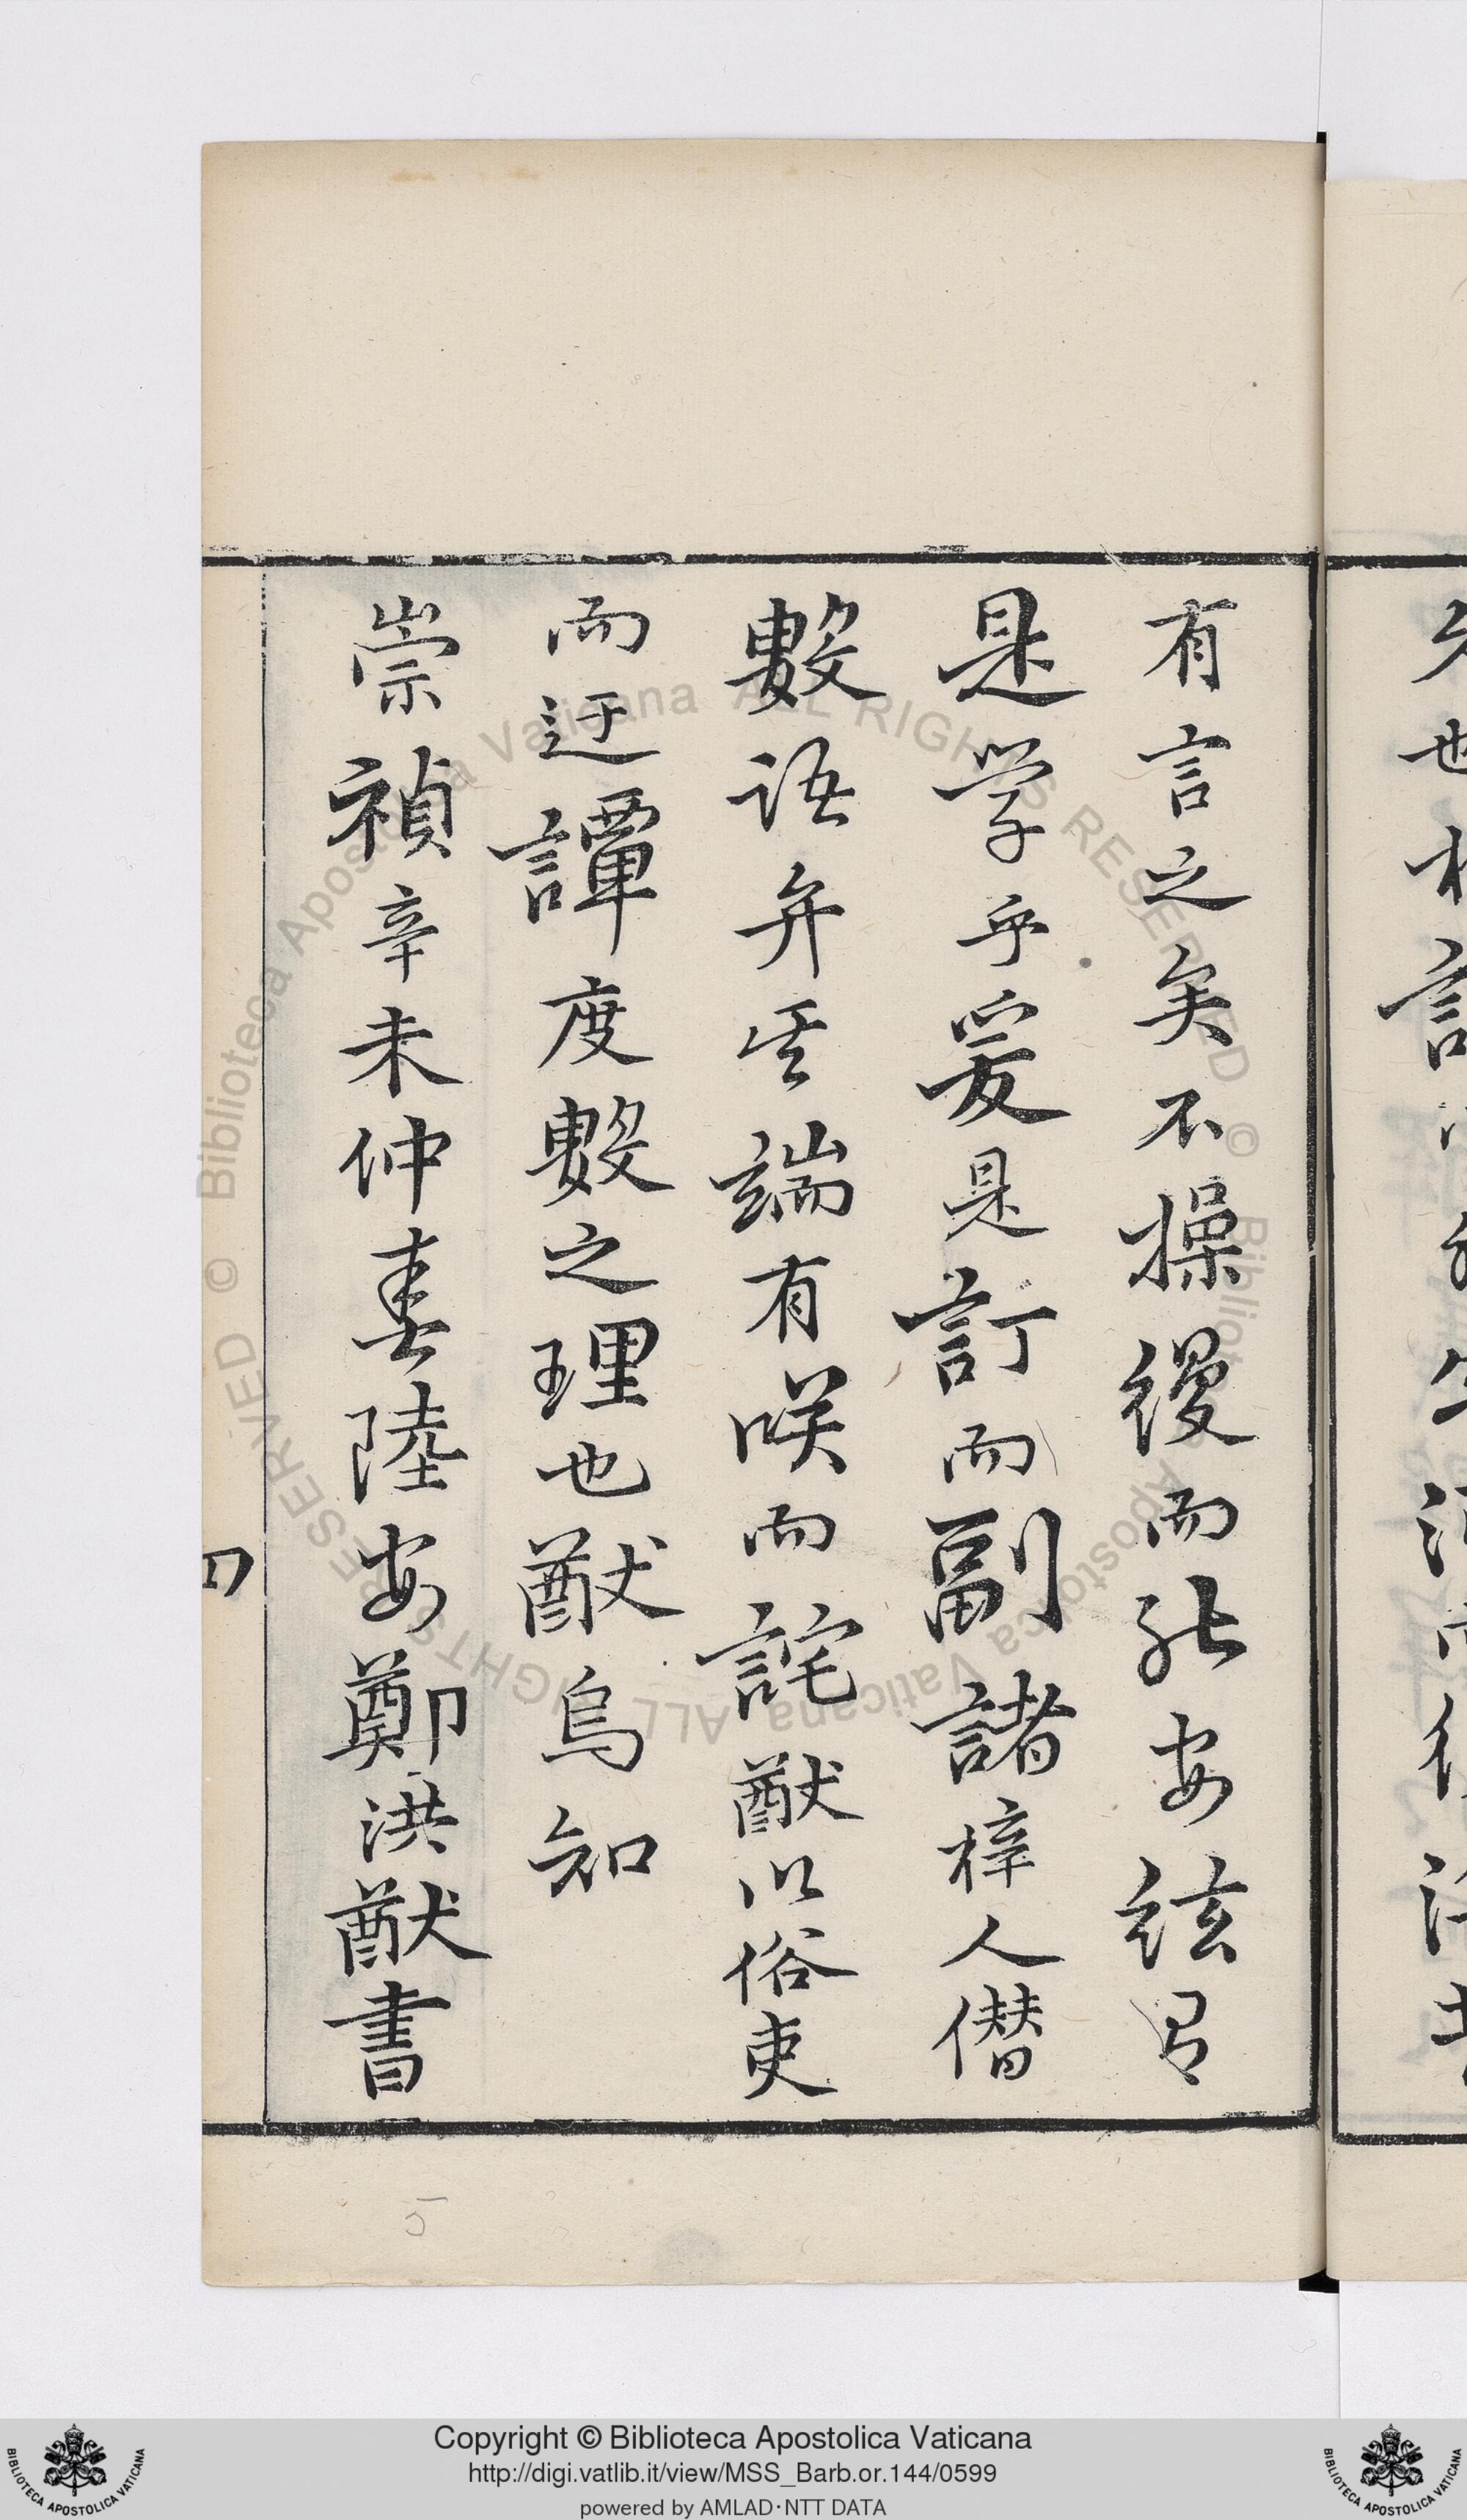 有言之矣不操縵而能安絃邑
是学乎爰是訂而副諸梓人僭
數語弁其端有咲而詫猷以俗吏
而迂譚度數之理也猷烏知
崇禎辛未仲春陸安鄭洪猷書
四
5
Copyright © Biblioteca Apostolica Vaticana
http://digi.vatlib.it/view/MSS_Barb.or.144/0599
powered by AMLAD·NTT DATA